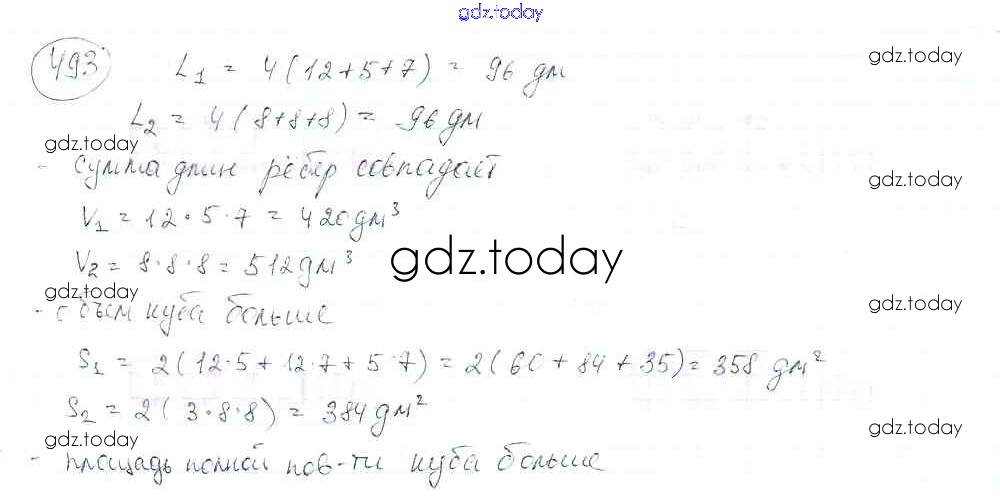 gdz.today
493
L₁ = 4(12+5+7) = 96 дм
gdz.today
L₂ = 4(8+8+8) = 96 дм
gdz.today
- сумма длин рёбер совпадает
gdz.today
V₁ = 12·5·7 = 420 дм³
V₂ = 8·8·8 = 512 дм³
gdz.today
gdz.today
- объем куба больше
gdz.today
S₁ = 2(12·5+12·7+5·7) = 2(60+84+35) = 358 дм²
S₂ = 2(3·8·8) = 384 дм²
gdz.today
gdz.today
- площадь полной пов-ти куба больше